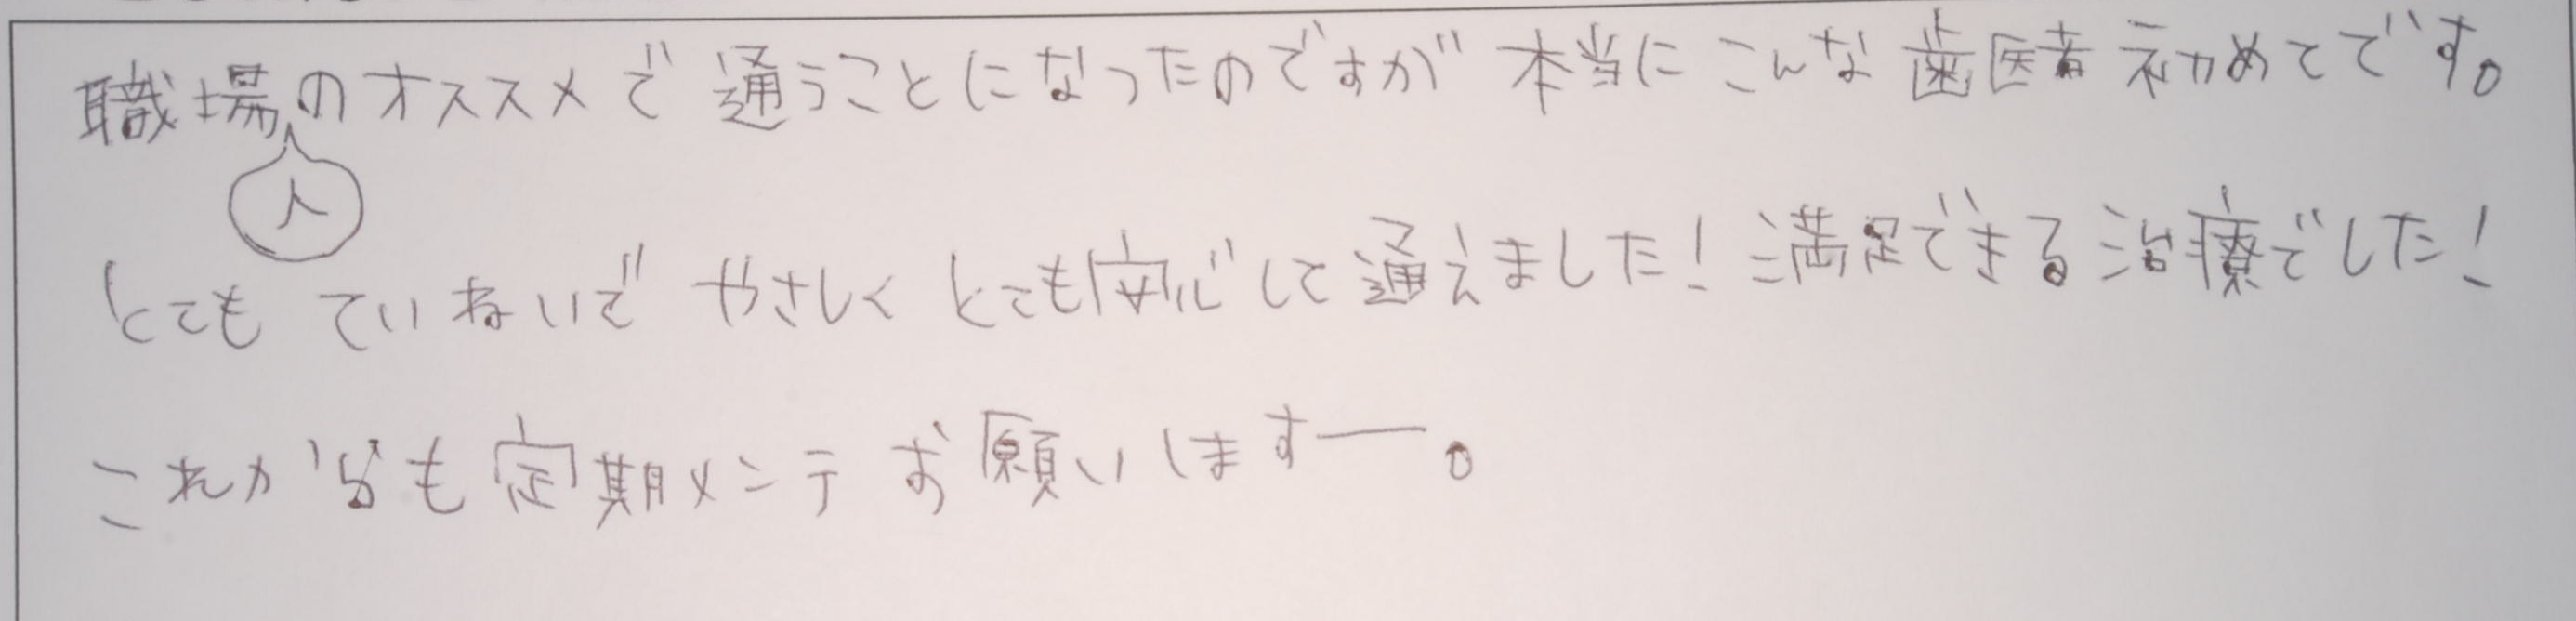 職場人のオススメで通うことになったのですが本当にこんな歯医者初めてです。
とてもていねいでやさしくとても安心して通えました!満足できる治療でした!
これからも定期メンテお願いしますー。